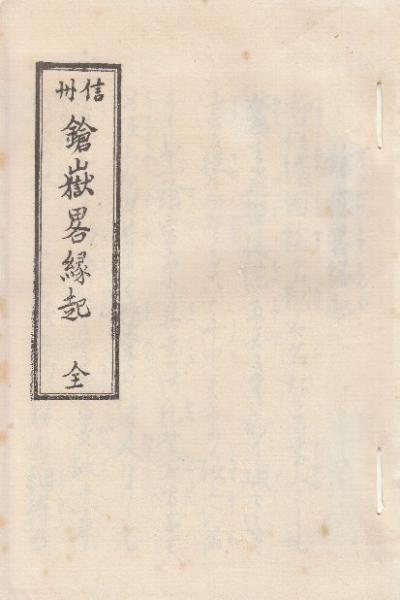 信州
鎗嶽畧縁起
全